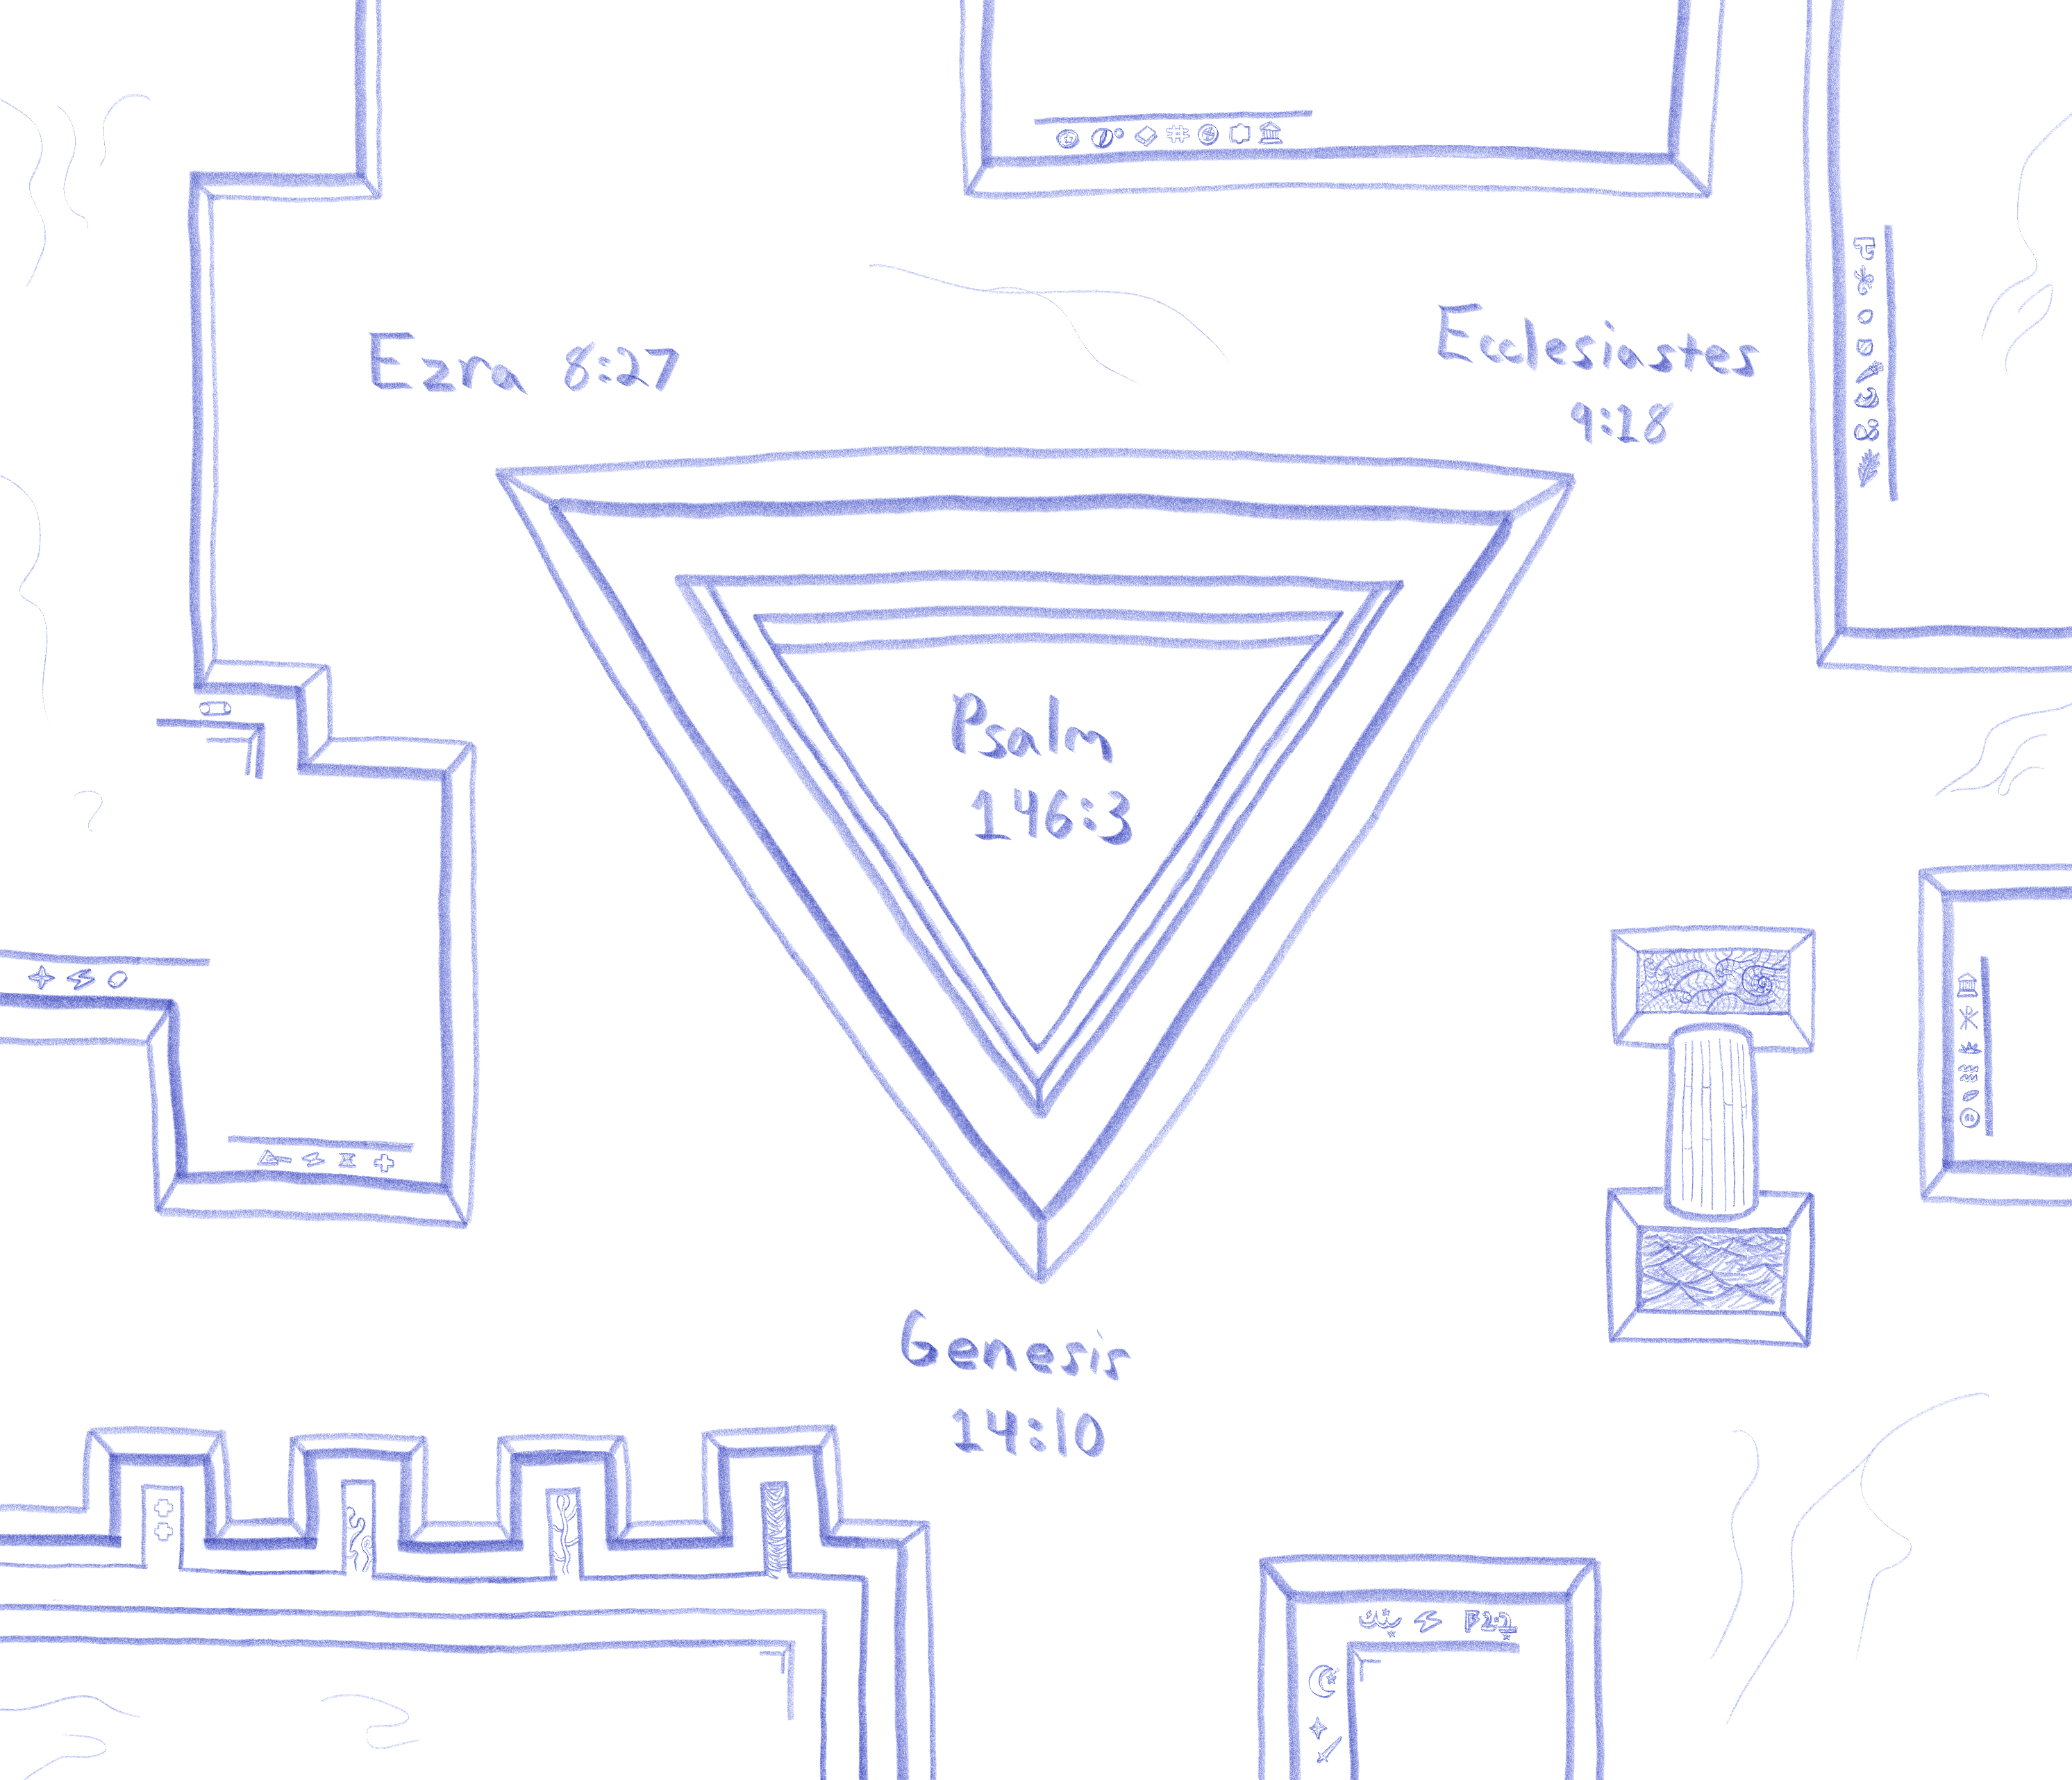 Ezra 8:27
Ecclesiastes
9:18
Psalm
146:3
Genesis
14:10